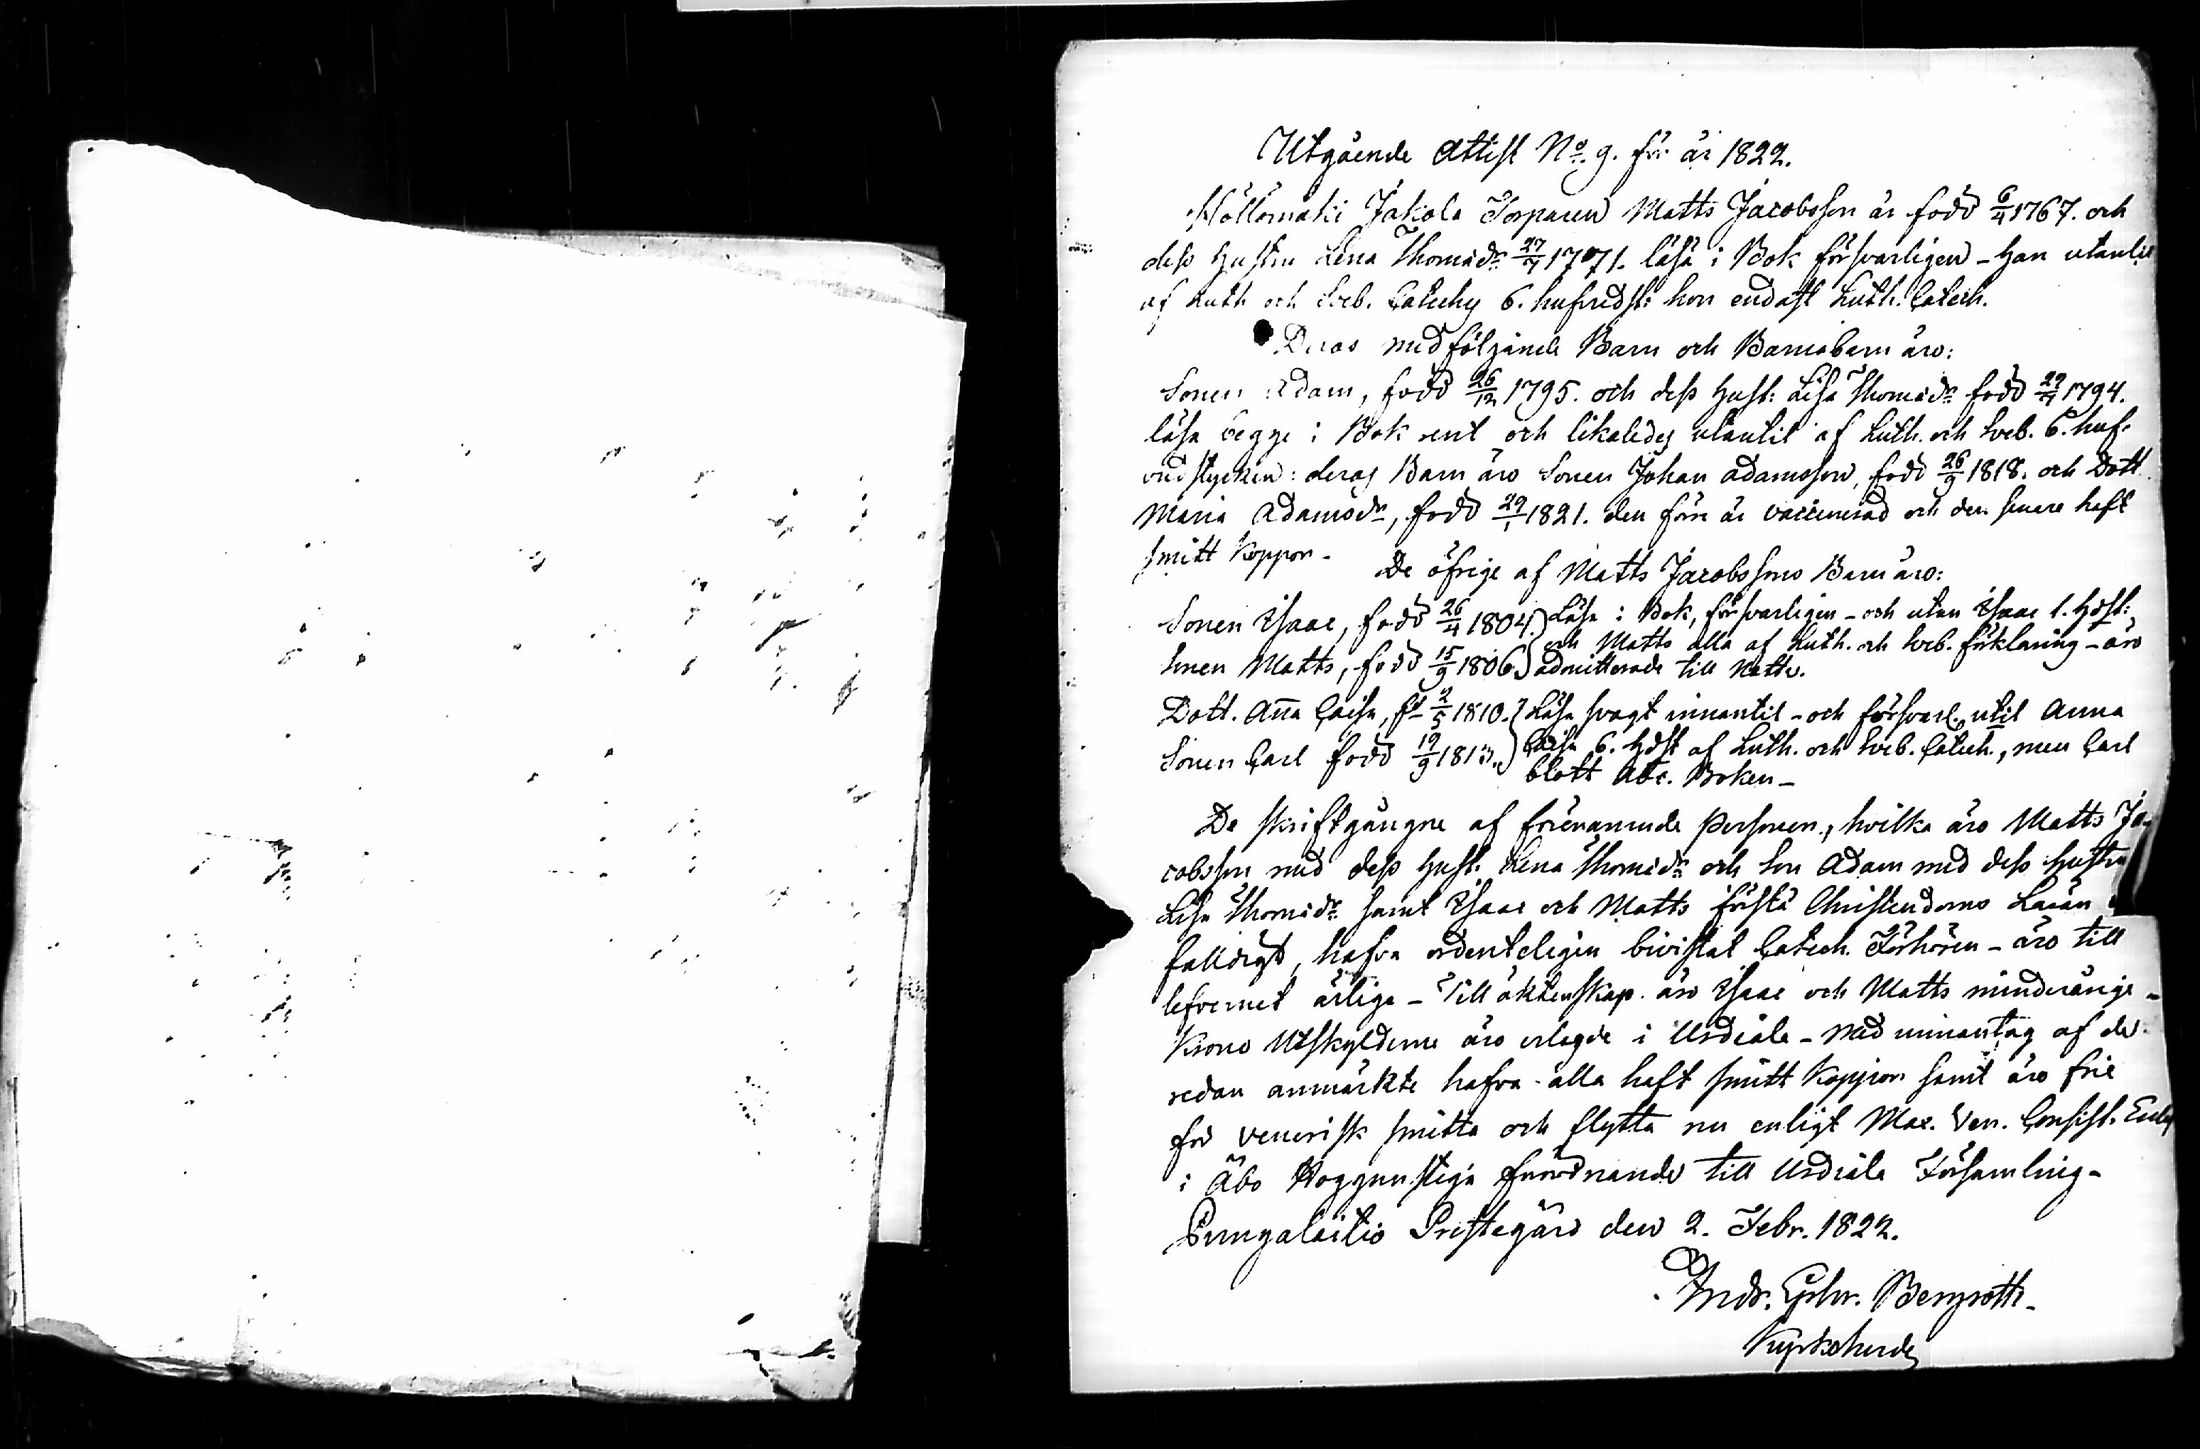 Utgående Attist No. 9. för år 1822.
Höllömäki Jakola Torparen Matts Jacobsson är född 6/4 1767. och
dess Hustru Lena Thomædr 27/7 1771. läsa i Bok försvarligen - Han utantil
af Luth. och Sveb. Cateches 6. hufvudst: hon endast Luth. Catech.
Deras medföljande Barn och Barnabarn äro:
Sonen Adam, född 26/12 1795. och dess Hust: Lisa Thomædr född 29/4 1794.
läsa begge i Bok rent och likaledes utantil af Luth. och Sveb. 6. huf-
vudstycken: deras Barn äro Sonen Johan Adamsson, född 26/9 1818. och Dott.
Maria Adamsdr, född 29/1 1821. den förr är vaccinerad och den senare haft
smitt koppor -
De öfrige af Matts Jacobssons Barn äro:
Sonen Isaac, född 26/4 1804. Läsa i Bok, försvarligen - och utan Isaac 1. Hdst:
och Matts alla af Luth. och Sveb. förklaring - äro
Sonen Matts, född 15/9 1806. admitterade till Nattv.
Dott. Anna Caisa, fd 2/5 1810. Läsa svagt innantil - och försvarl. util Anna
Caisa 6. Hdst af Luth. och Sveb. Catech., men Carl
Sonen Carl född 19/9 1813. blott Abc. Boken -
De skriftgångne af förenämnde Personer, hvilka äro Matts Ja-
cobsson med dess Hust. Lena Thomædr och Son Adam med dess hustru
Lisa Thomædr samt Isaac och Matts förstå Christendoms Läran
falldigt, hafva ordenteligen bivistat Catech. Förhören - äro till
lefvernet ärliga - Till äktenskap äro Isaac och Matts minderårige -
Krono Utskylderne äro erlagde i Urdiala - Med undantag af de
redan anmärkte hafva alla haft smitt koppor samt äro frie
för venerisk smitta och flytta nu enligt Max. Ven. Consist. Eccles
i Åbo Höggunstiga förordnande till Urdiala Församling -
Pungalaitio Prestegård den 2. Febr. 1822.
Andr. Gust. Bergroth -
Kyrkoherde